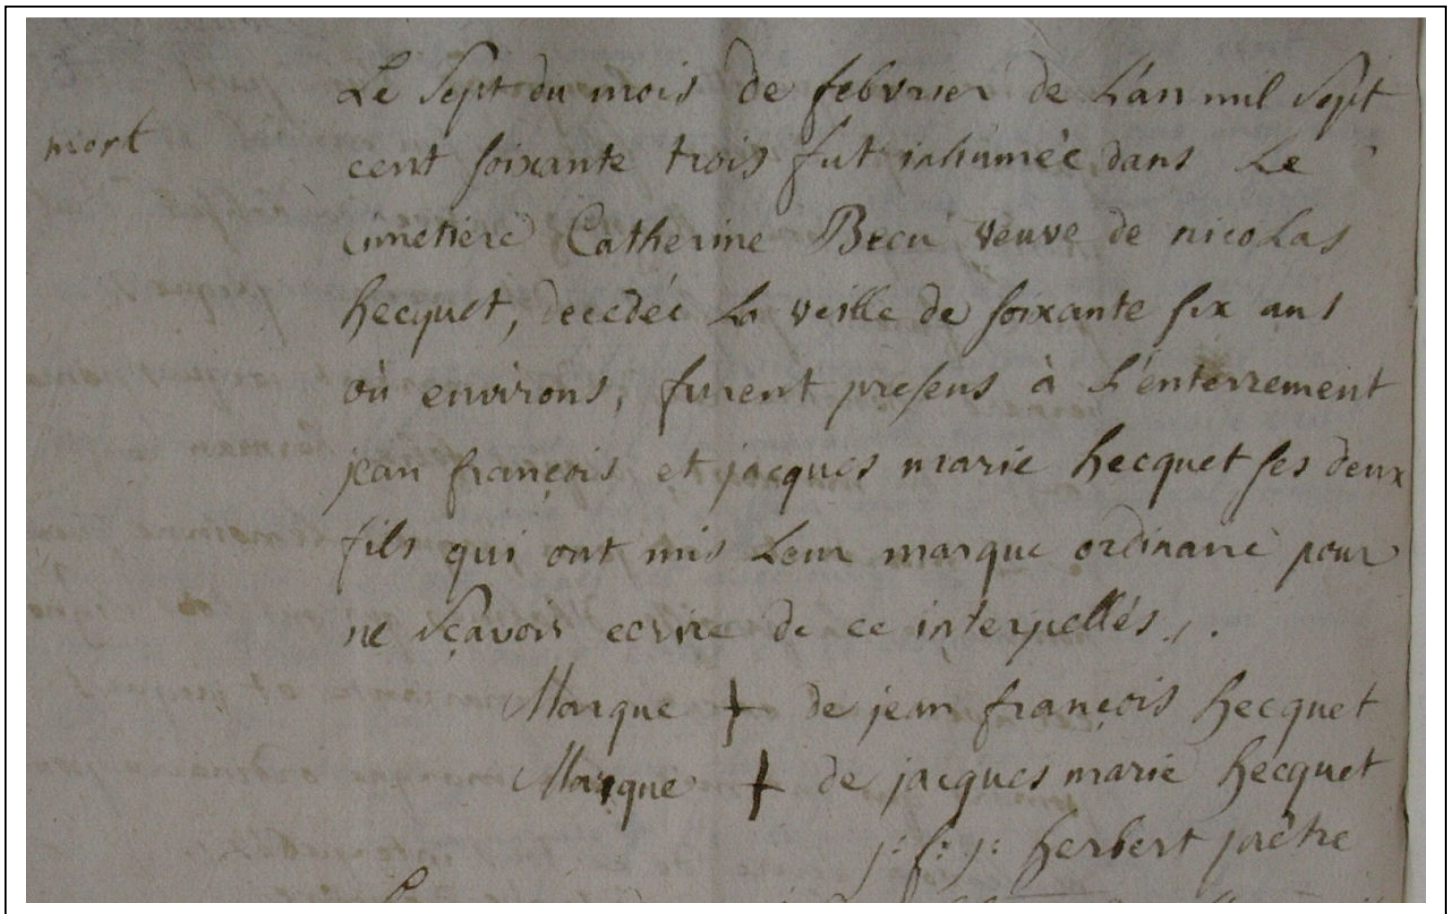 Le sept du mois de febvrier de L'an mil sept
mort
cent soixante trois fut inhumée dans Le
cimetiere Catherine Becu veuve de nicolas
hecquet, decedée La veille de soixante six ans
où environs, furent presens à L'enterrement
jean françois et jacques marie hecquet ses deux
fils qui ont mis Leur marque ordinaire pour
ne sçavoir ecrire de ce interpellés.
Marque + de jean françois hecquet
Marque + de jacques marie hecquet
herbert prêtre